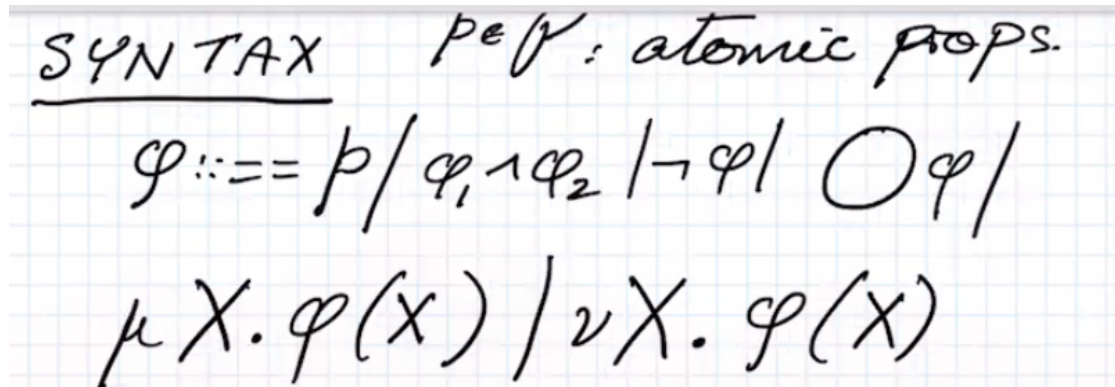 SYNTAX p∈P: atomic props.
φ::== p | φ₁∧φ₂ | ¬φ | ◯φ |
μX.φ(X) | νX.φ(X)